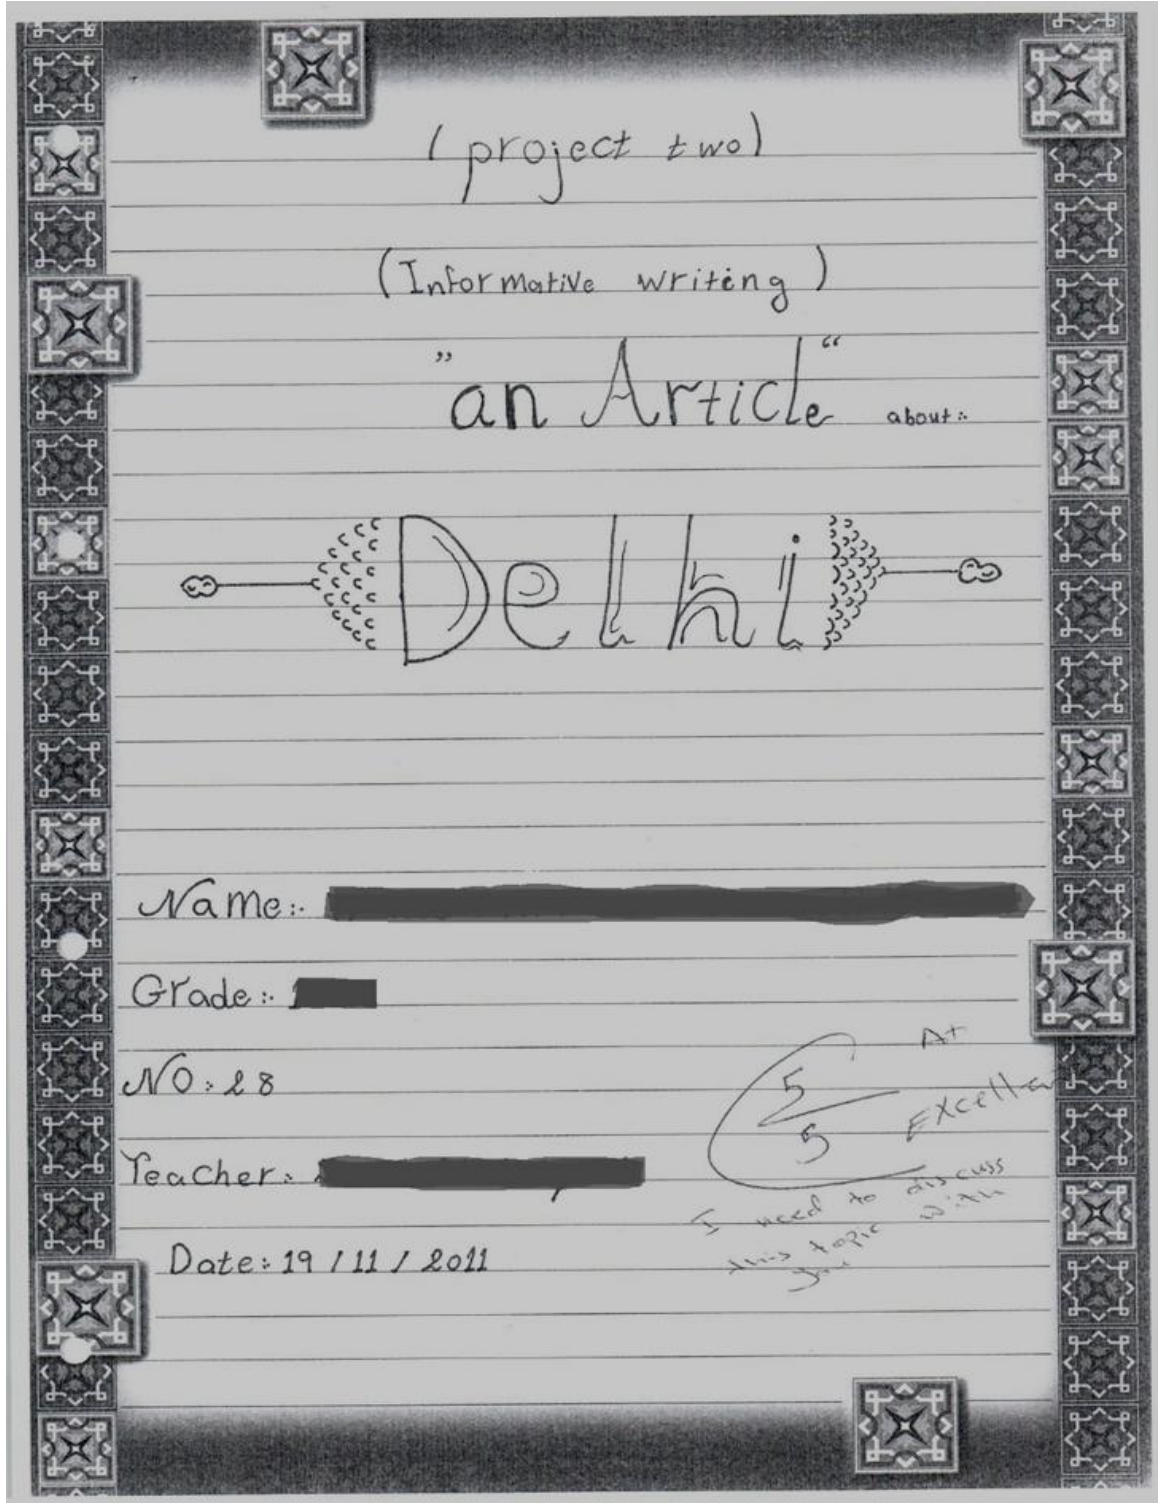 (project two)
(Informative writing)
"an Article" about:-
Delhi
Name:-
Grade:-
NO: 28
Teacher:
Date: 19 / 11 / 2011
A+
5/5
Excellent
I need to discuss
this topic with
you